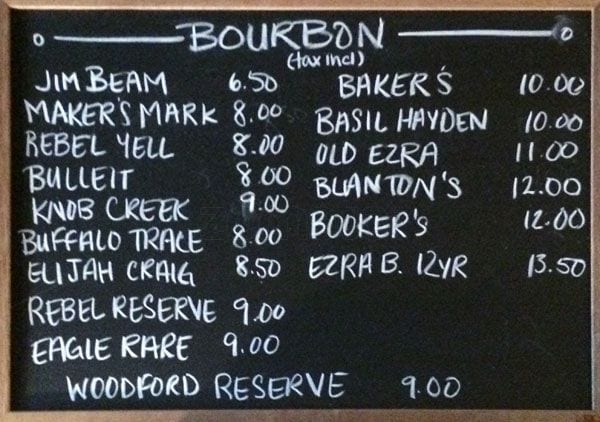 BOURBON
(tax incl)
JIM BEAM 6.50
MAKER'S MARK 8.00
REBEL YELL 8.00
BULLEIT 8.00
KNOB CREEK 9.00
BUFFALO TRACE 8.00
ELIJAH CRAIG 8.50
REBEL RESERVE 9.00
EAGLE RARE 9.00
WOODFORD RESERVE 9.00
BAKER'S 10.00
BASIL HAYDEN 10.00
OLD EZRA 11.00
BLANTON'S 12.00
BOOKER'S 12.00
EZRA B. 12YR 13.50